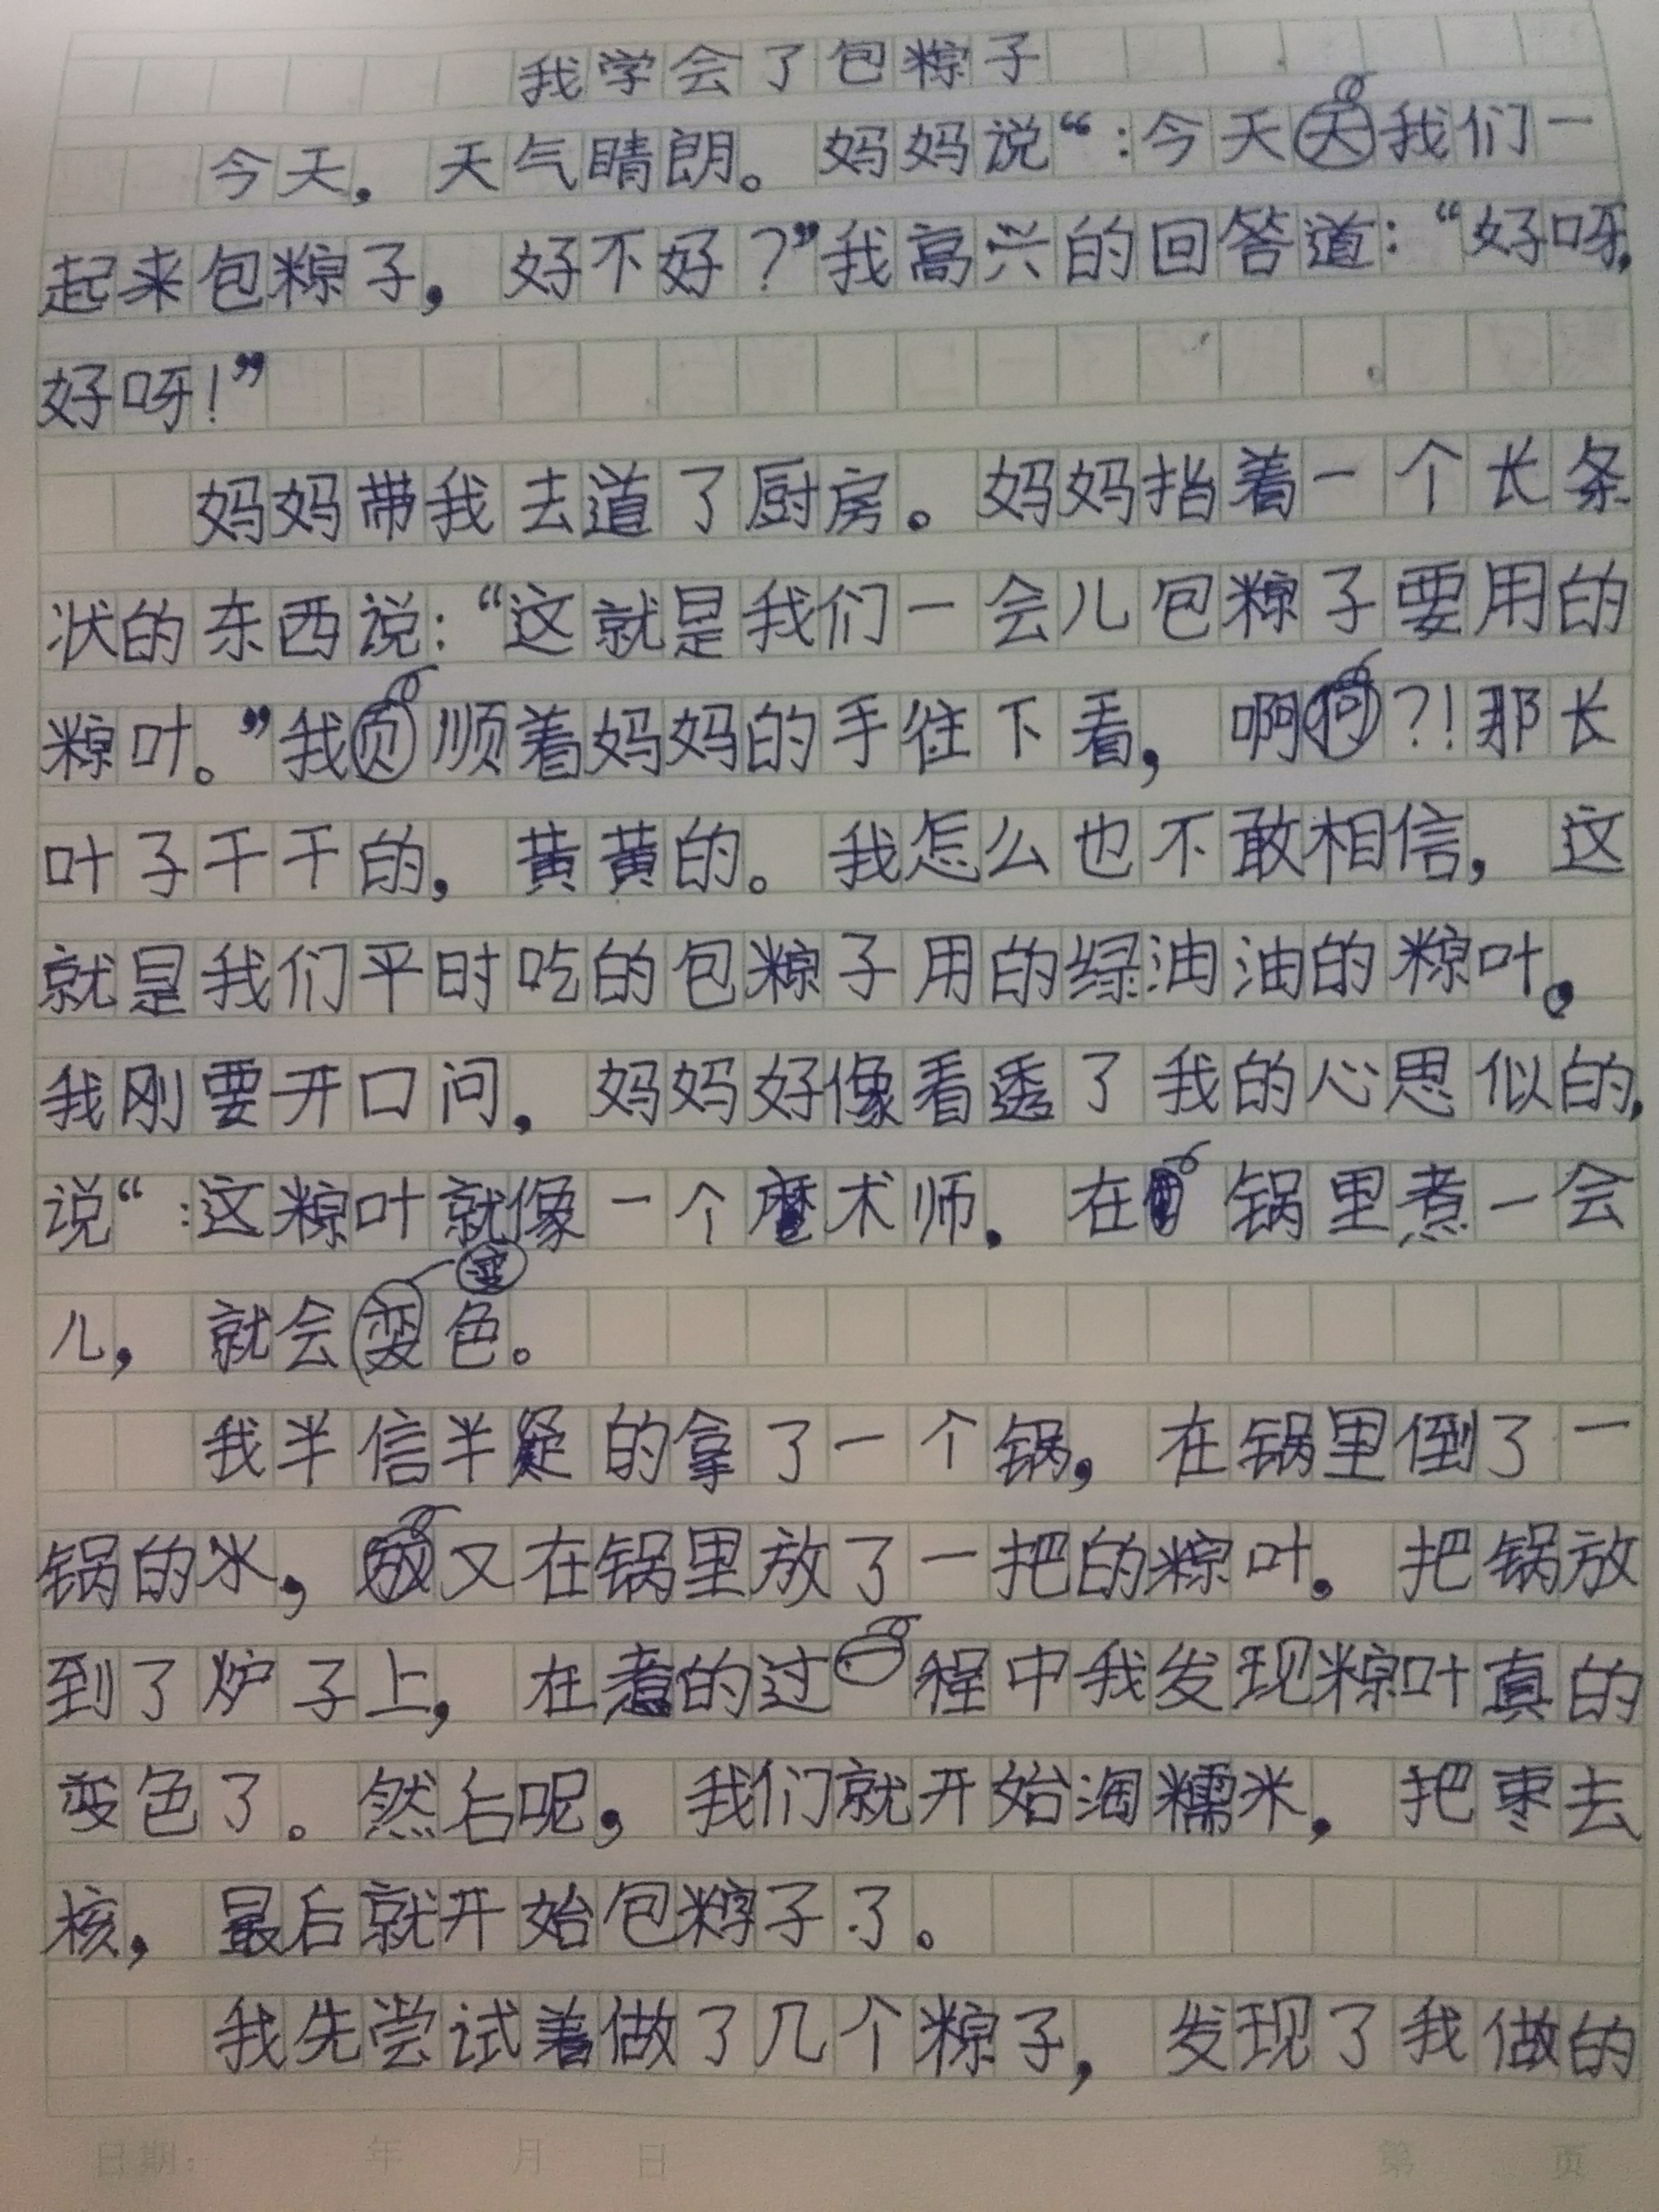 我学会了包粽子
今天，天气睛朗。妈妈说“：今天我们一
起来包粽子，好不好？”我高兴的回答道：“好呀，
好呀！”
妈妈带我去道了厨房。妈妈指着一个长条
状的东西说：“这就是我们一会儿包粽子要用的
粽叶。”我顺着妈妈的手往下看，啊？！那长
叶子干干的，黄黄的。我怎么也不敢相信，这
就是我们平时吃的包粽子用的绿油油的粽叶。
我刚要开口问，妈妈好像看透了我的心思似的，
说“：这粽叶就像一个魔术师，在锅里煮一会
变
儿，就会色。
我半信半疑的拿了一个锅，在锅里倒了一
锅的水，又在锅里放了一把的粽叶。把锅放
到了炉子上，在煮的过程中我发现粽叶真的
变色了。然后呢，我们就开始淘糯米，把枣去
核，最后就开始包粽子了。
我先尝试着做了几个粽子，发现了我做的
日期： 年 月 日 第 页